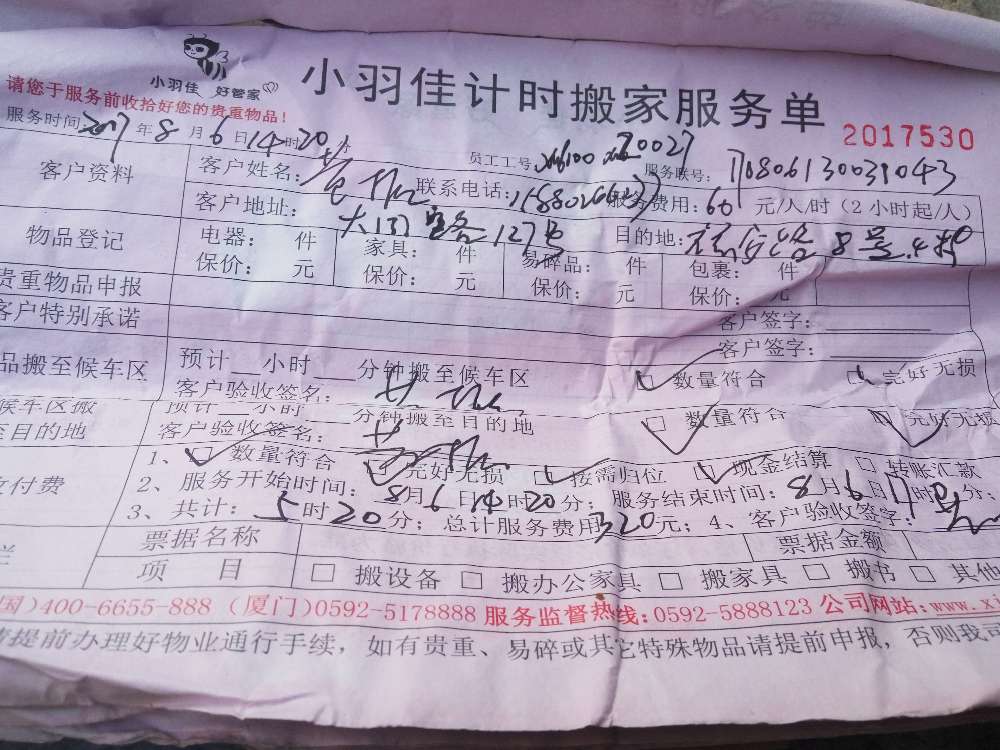 小羽佳 好管家
小羽佳计时搬家服务单
请您于服务前收拾好您的贵重物品！
2017530
服务时间 2017年8月6日14时20分
员工工号： 服务联号：
客户资料 客户姓名： 联系电话： 服务费用：60元/人/时（2小时起/人）
客户地址： 127号 目的地： 8号
物品登记 电器： 件 家具： 件 易碎品： 件 包裹： 件
保价： 元 保价： 元 保价： 元 保价： 元
贵重物品申报 客户签字：
客户特别承诺 客户签字：
品搬至候车区 预计__小时___分钟搬至候车区 数量符合 完好无损
客户验收签名：
候车区搬至目的地 预计__小时___分钟搬至目的地 数量符合 完好无损
客户验收签名：
付费 1、数量符合 完好无损 按需归位 现金结算 转账汇款
2、服务开始时间：8月6日14时20分；服务结束时间：8月6日17时 分；
3、共计：5时20分；总计服务费用320元；4、客户验收签字：
栏 票据名称 票据金额
项 目 □ 搬设备 □ 搬办公家具 □ 搬家具 □ 搬书 □ 其他
国)400-6655-888 (厦门)0592-5178888 服务监督热线:0592-5888123 公司网站:www.xi
请提前办理好物业通行手续，如有贵重、易碎或其它特殊物品请提前申报，否则我司